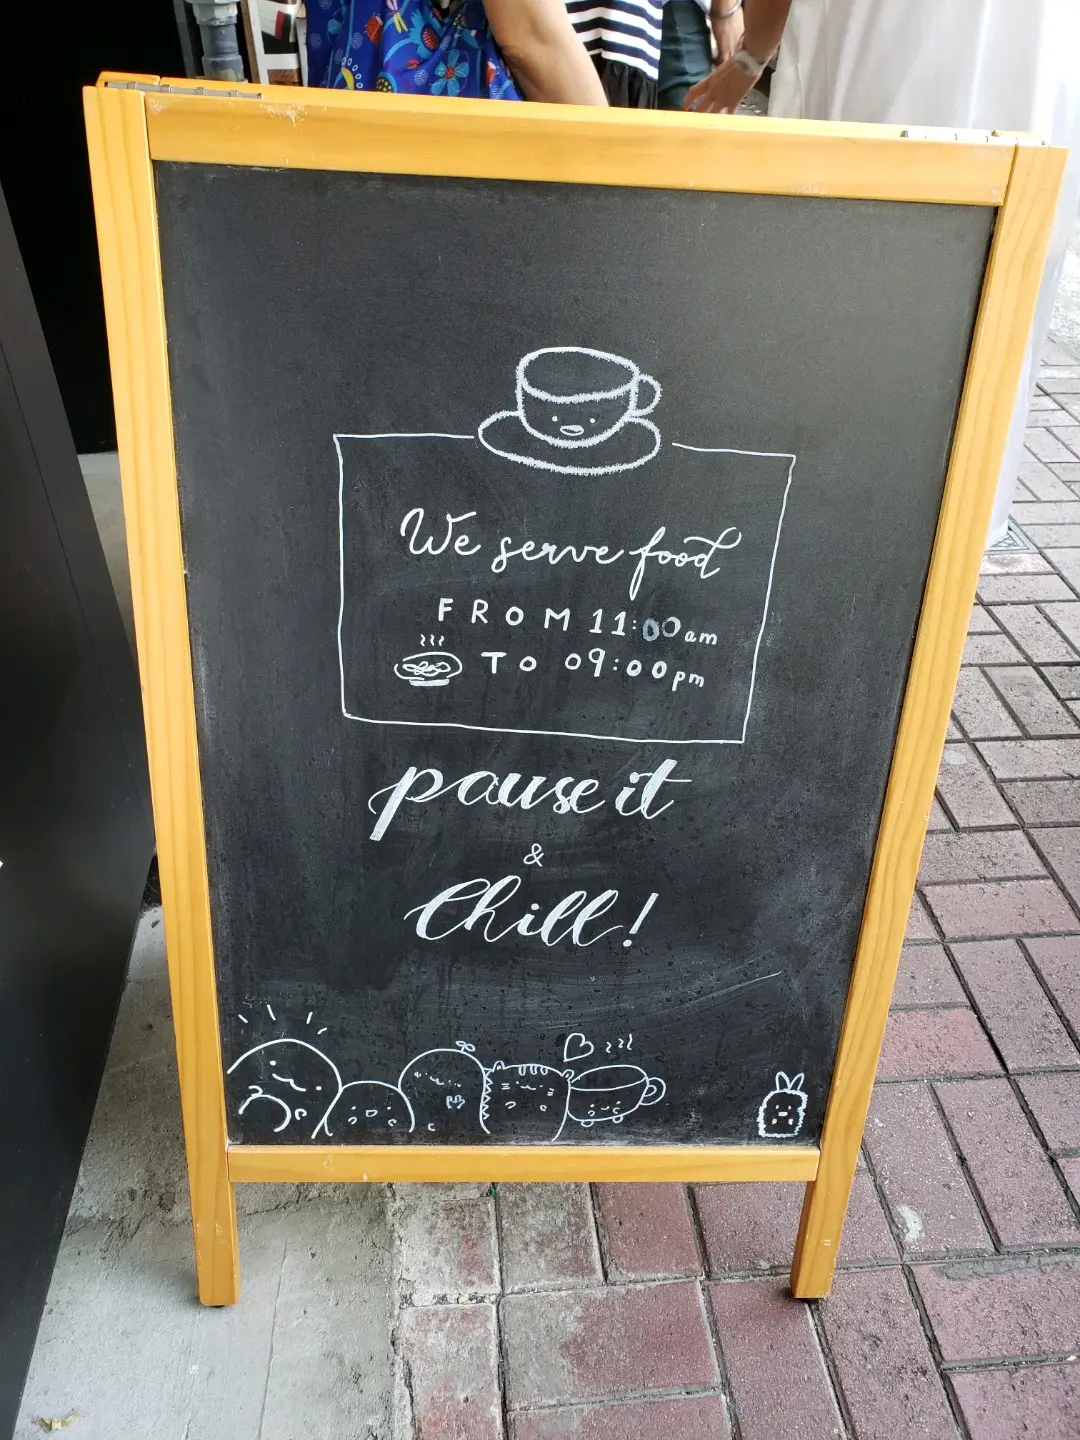 We serve food
FROM 11:00am
TO 09:00pm
pause it
&
Chill!